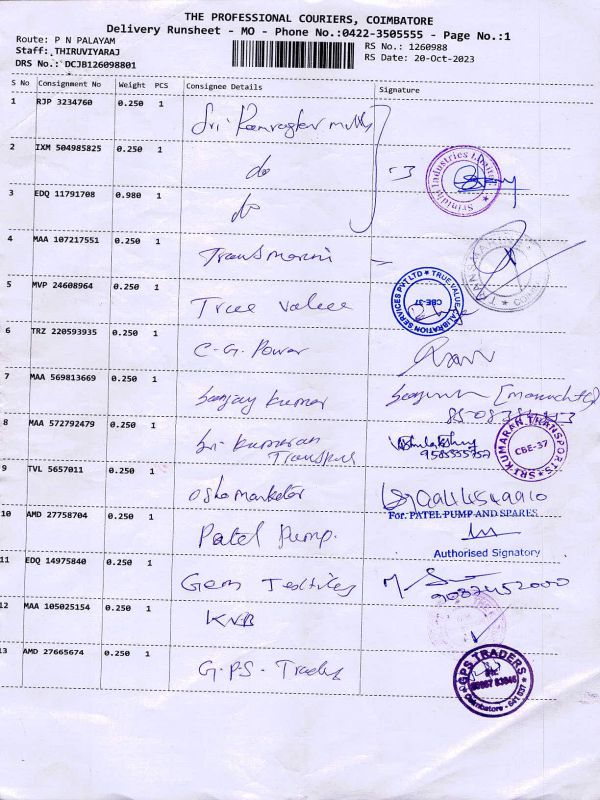 THE PROFESSIONAL COURIERS, COIMBATORE
Delivery Runsheet - MO - Phone No.:0422-3505555 - Page No.:1
Route: P N PALAYAM
RS No.: 1260988
Staff: THIRUVIYARAJ
RS Date: 20-Oct-2023
DRS No.: DCJB126098801
S No Consignment No Weight PCS Consignee Details Signature
1 RJP 3234760 0.250 1 Sri
2 IXM 504985825 0.250 1 do
3 EDQ 11791708 0.980 1 do
3
Srinidhi Industries Limited
4 MAA 107217551 0.250 1 Transmarini
5 MVP 24608964 0.250 1 True value
TRUE VALUE CALIBRATION SERVICES PVT LTD
CBE-37
6 TRZ 220593935 0.250 1 C.G. Power
7 MAA 569813669 0.250 1 Sanjay Kumar
8 MAA 572792479 0.250 1 Sri Kumaran
Transport
SRI KUMARAN TRANSPORTS
CBE-37
9 TVL 5657011 0.250 1 Osho marketer
10 AMD 27758704 0.250 1 Patel Pump.
For. PATEL PUMP AND SPARES
Authorised Signatory
11 EDQ 14975840 0.250 1 Gem Textiles
9087452000
12 MAA 105025154 0.250 1 KNB
13 AMD 27665674 0.250 1 G.P.S. Traders
GPS TRADERS
Coimbatore - 641 037